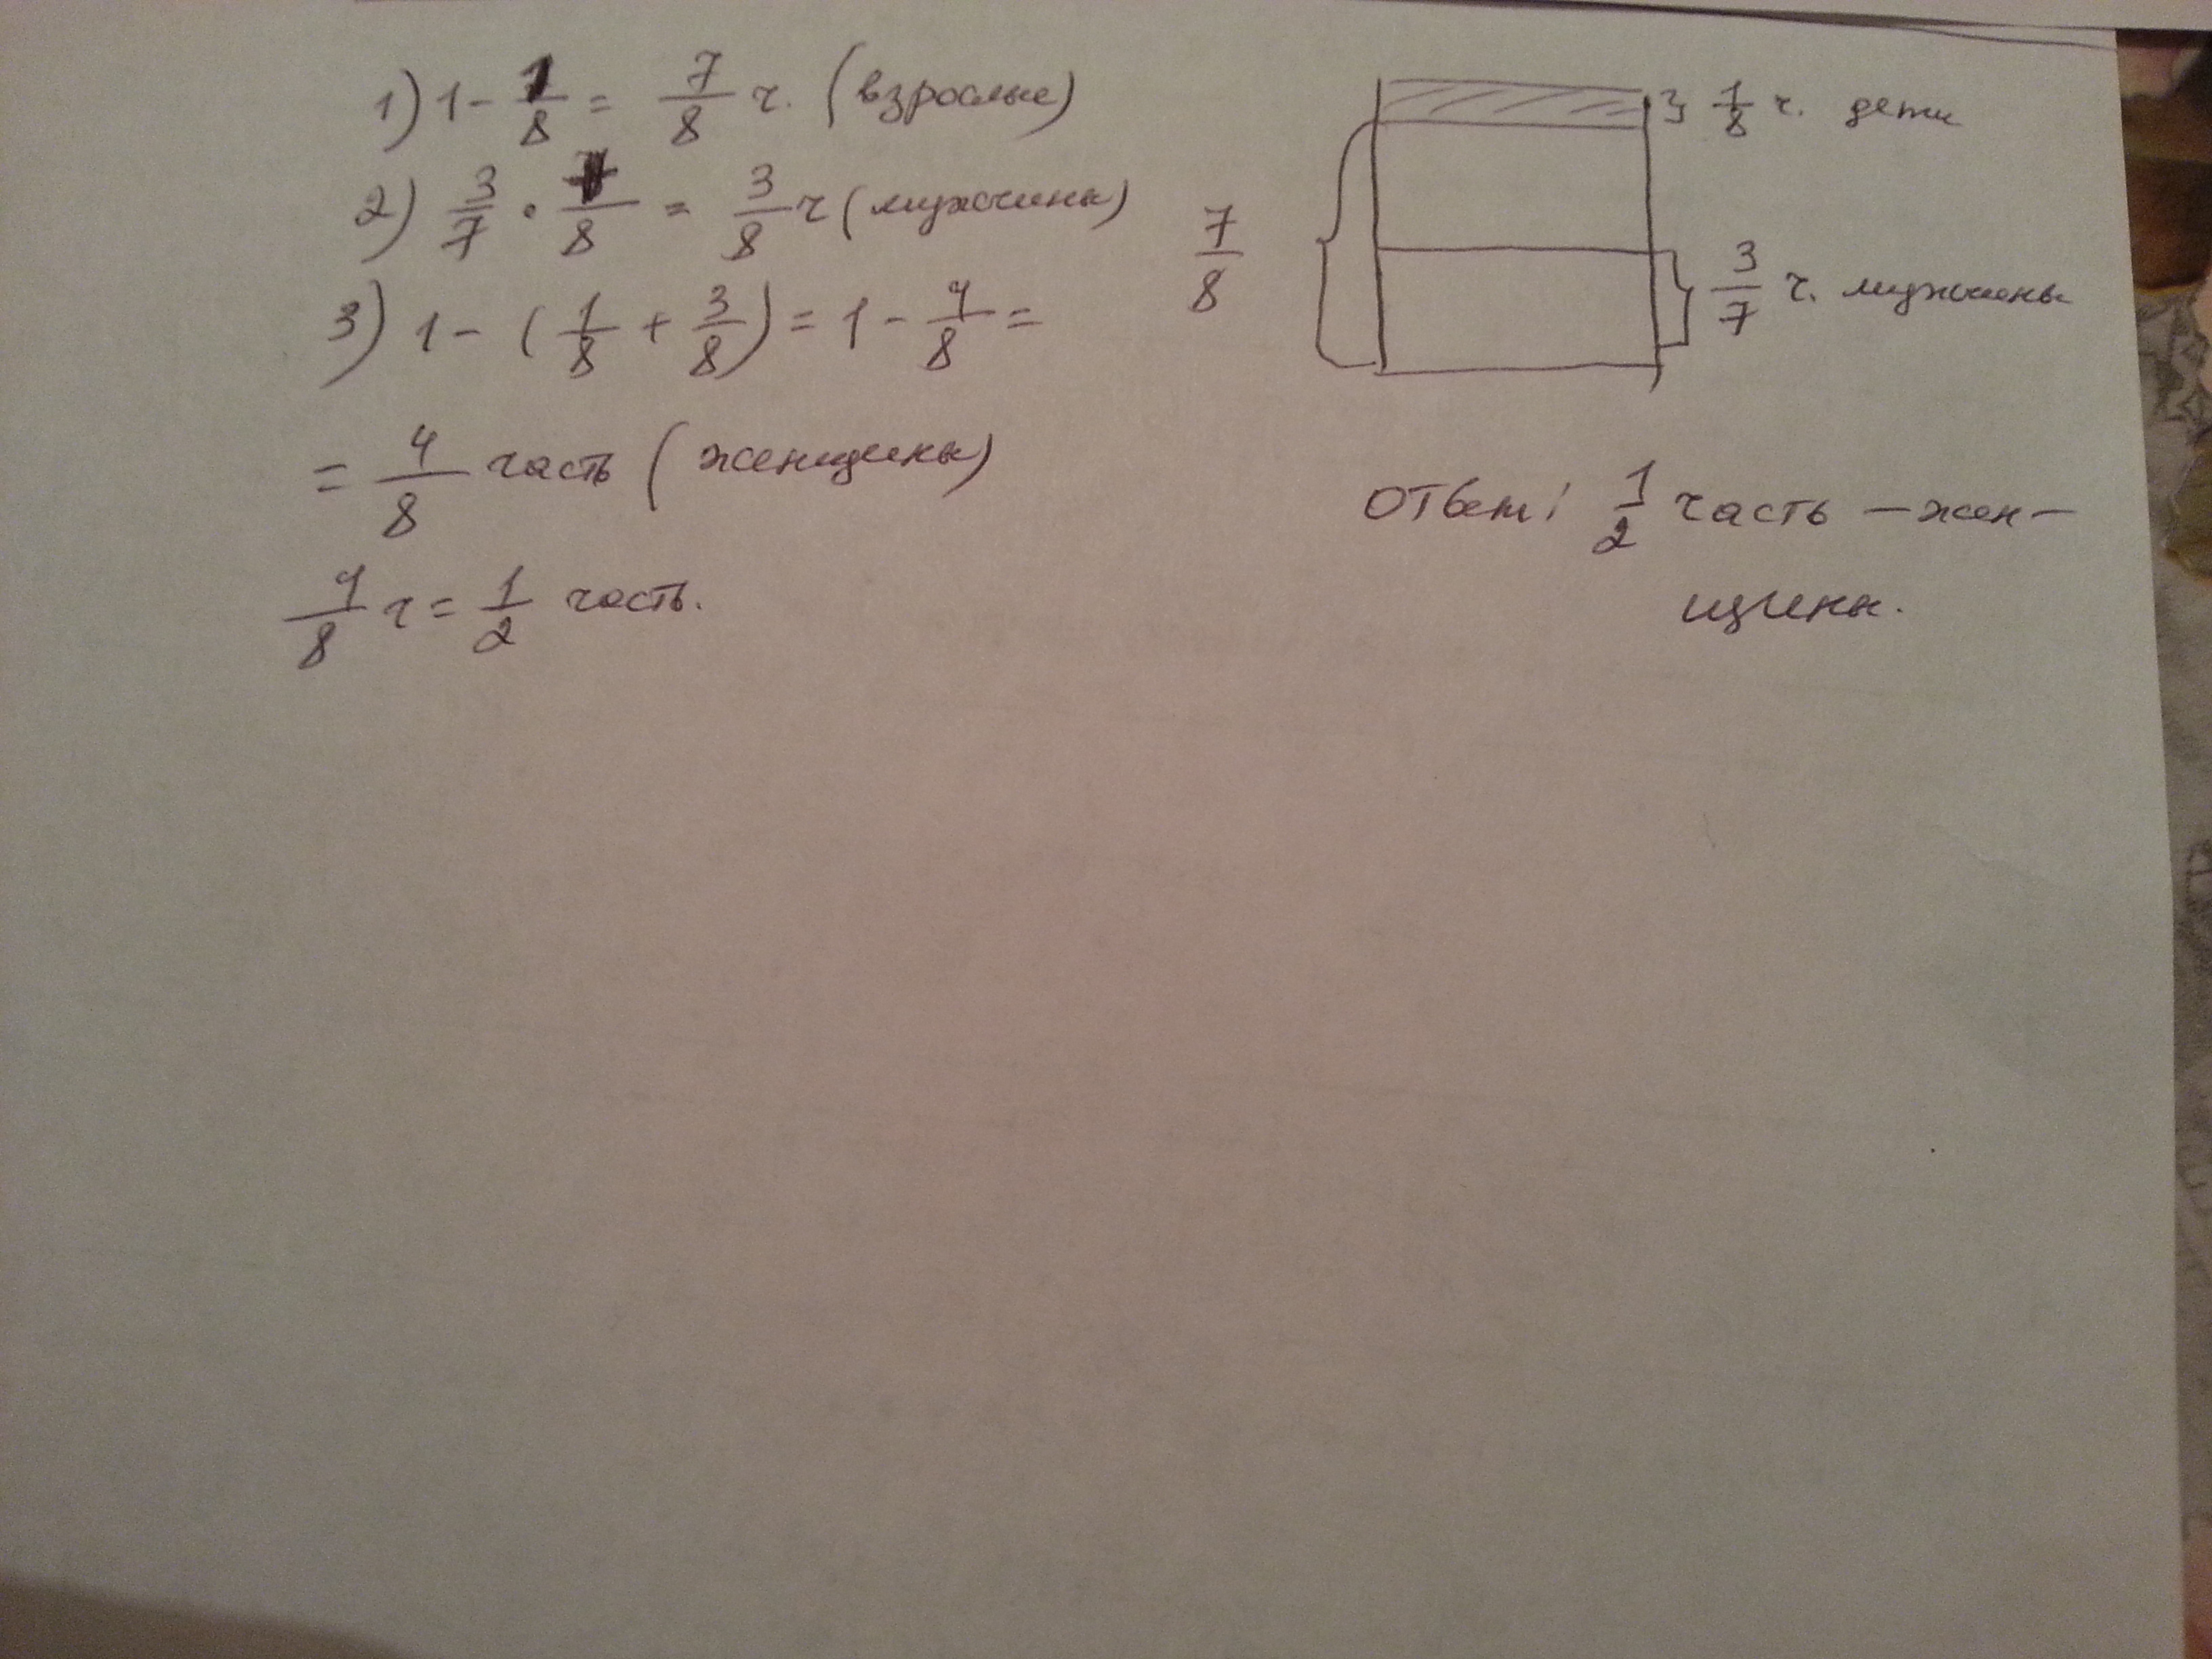 1) 1 - 1/8 = 7/8 ч. (взрослые)
2) 3/7 · 7/8 = 3/8 ч (мужчины)
3) 1 - (1/8 + 3/8) = 1 - 4/8 =
= 4/8 часть (женщины)
4/8 ч = 1/2 часть.
1/8 ч. дети
7/8
3/7 ч. мужчины
Ответ: 1/2 часть - жен-
щины.